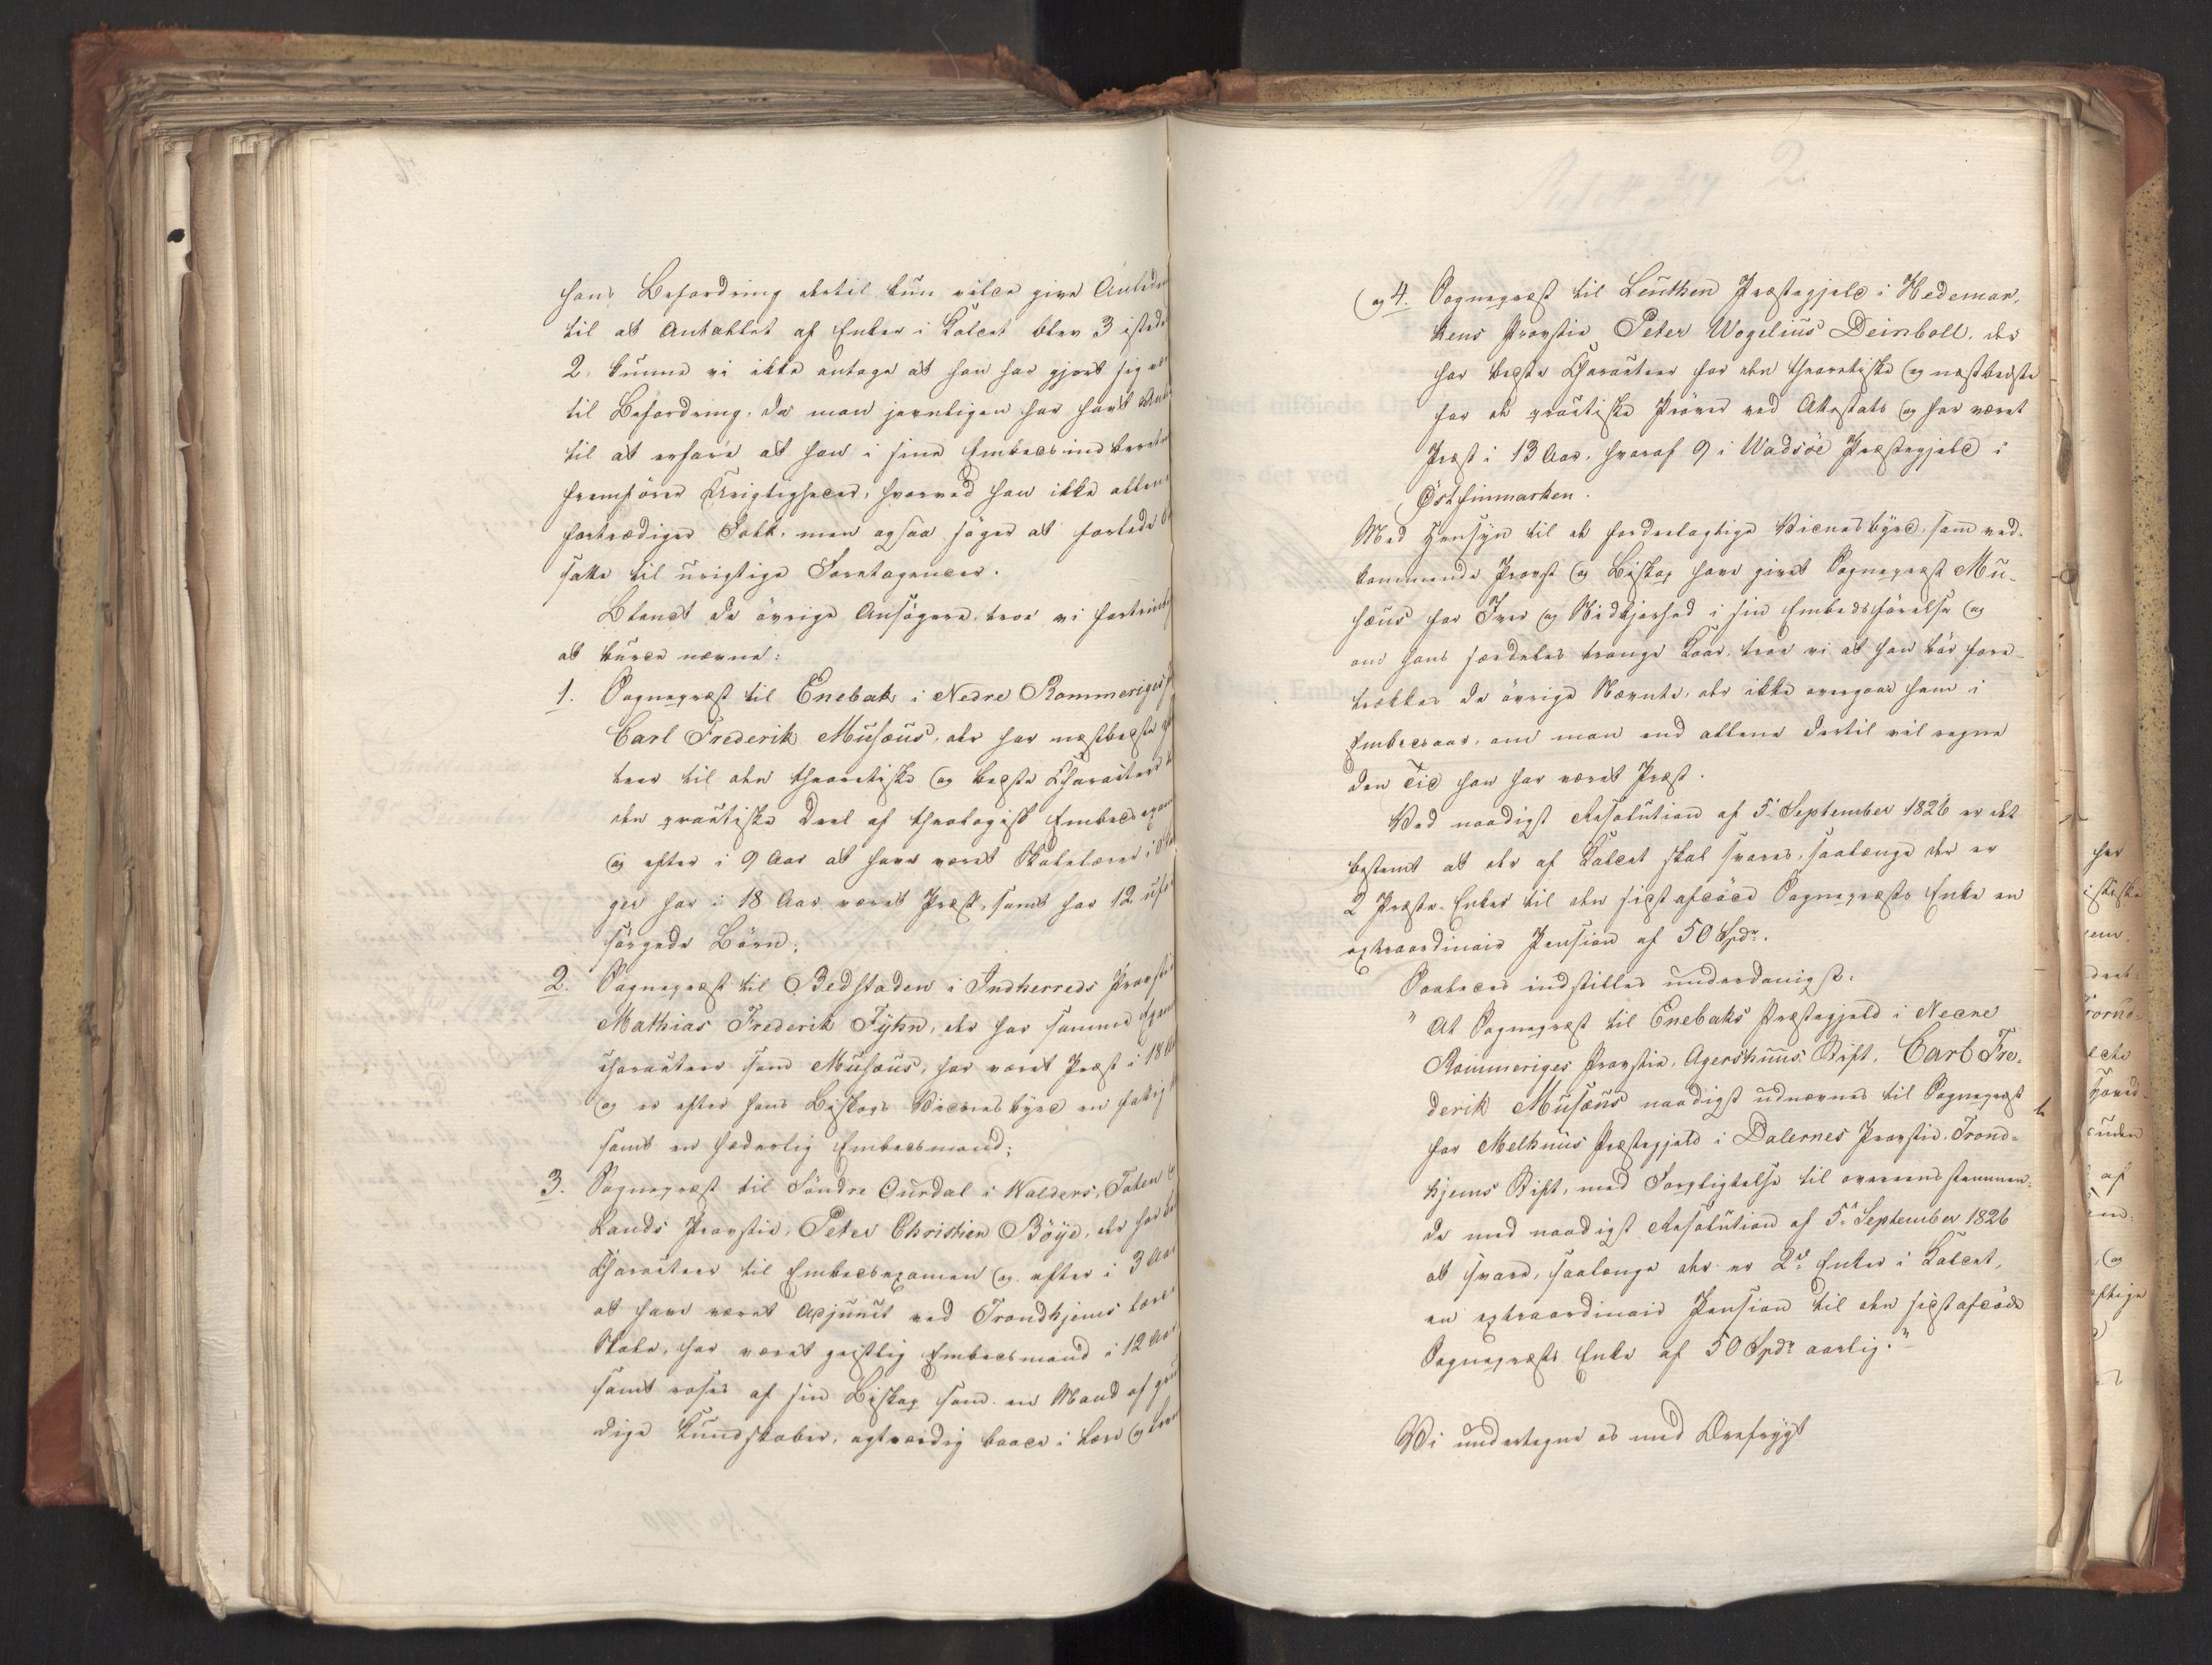 hans Befordring dertil kun vilde give Anledn
til at Antallet af Enker i Kaldet blev 3 istede
2, kunne vi ikke antage at han har gjort sig
til Befordring, da man jevnligen har havt
til at erfare at han i sine Embedsindberetn
fremfører Urigtigheder, hvorved han ikke allene
fortrædiger Folk, men ogsaa søger at forlede
satte til urigtige Foretagender.
Blandt de øvrige Ansøgere, troe vi fortrinlig
at burde nævne:
1. Sognepræst til Enebak i Nedre Rommeriges
Carl Frederik Musæus, der har næstbedste
teer til den theoretiske og bedste Charakteer
den practiske Deel af theologisk Embedsexam
og efter i 9 Aar at have været Skolelærer i
ger har i 18 Aar været Præst, samt har 12 ufor
sørgede Børn;
2. Sognepræst til Bedstaden i Indherreds Provsti
Mathias Frederik Fyhn, der har samme Exam
charakteer som Musæus, har været Præst i 18
og er efter hans Biskops Vidnesbyrd en
samt en hæderlig Embedsmand;
3. Sognepræst til Söndre Ourdal i Walders, Toten
Lands Provstie, Peter Christian Böye, der har
Charakteer til Embedsexamen og efter i 3 Aar
at have været Adjunct ved Trondhjems lærde
Skole, har været geistlig Embedsmand i 12 Aar
samt roses af sin Biskop som en Mand af
dige Kundskaber, agtværdig baade i Lære og
og 4. Sognepræst til Leuthen Præstegjeld i Hedemar-
kens Provstie Peter Wogelius Deinboll, der
har bedste Charakteer for den theoretiske og næstbedste
for de practiske Prøver ved Attestats og har været
Præst i 13 Aar, hvoraf 9 i Wadsöe Præstegjeld i
Östfinmarken.
Med Hensyn til de fordeelagtige Vidnesbyrd, som ved-
kommende Provst og Biskop have givet Sognepræst Mu-
sæus for Iver og Nidkjærhed i sin Embedsførelse og
om hans særdeles trange Kaar, troe vi at han bør fore-
trækkes de øvrige Nævnte, der ikke overgaae ham i
Embedsaar, om man end allene dertil vil regne
den Tid han har været Præst.
Ved naadigst Resolution af 5. September 1826 er det
bestemt at der af Kaldet skal svares, saalænge der er
2 Præste-Enker til den sidst afdøde Sognepræsts Enke en
extraordinair Pension af 50 Spdr.
Saaledes indstilles underdanigst:
"At Sognepræst til Enebaks Præstegjeld i Nedre
Rommeriges Provstie, Agershuus Stift, Carl Fre-
derik Musæus naadigst udnævnes til Sognepræst
for Melhuus Præstegjeld i Dalernes Provstie, Trond-
hjems Stift, med Forpligtelse til overeensstemmen-
de med naadigst Resolution af 5. September 1826
at svare, saalænge der er 2de Enker i Kaldet,
en extraordinair Pension til den sidst afdøde
Sognepræsts Enke af 50 Spdr aarlig."
Vi undertegne os med Ærefrygt